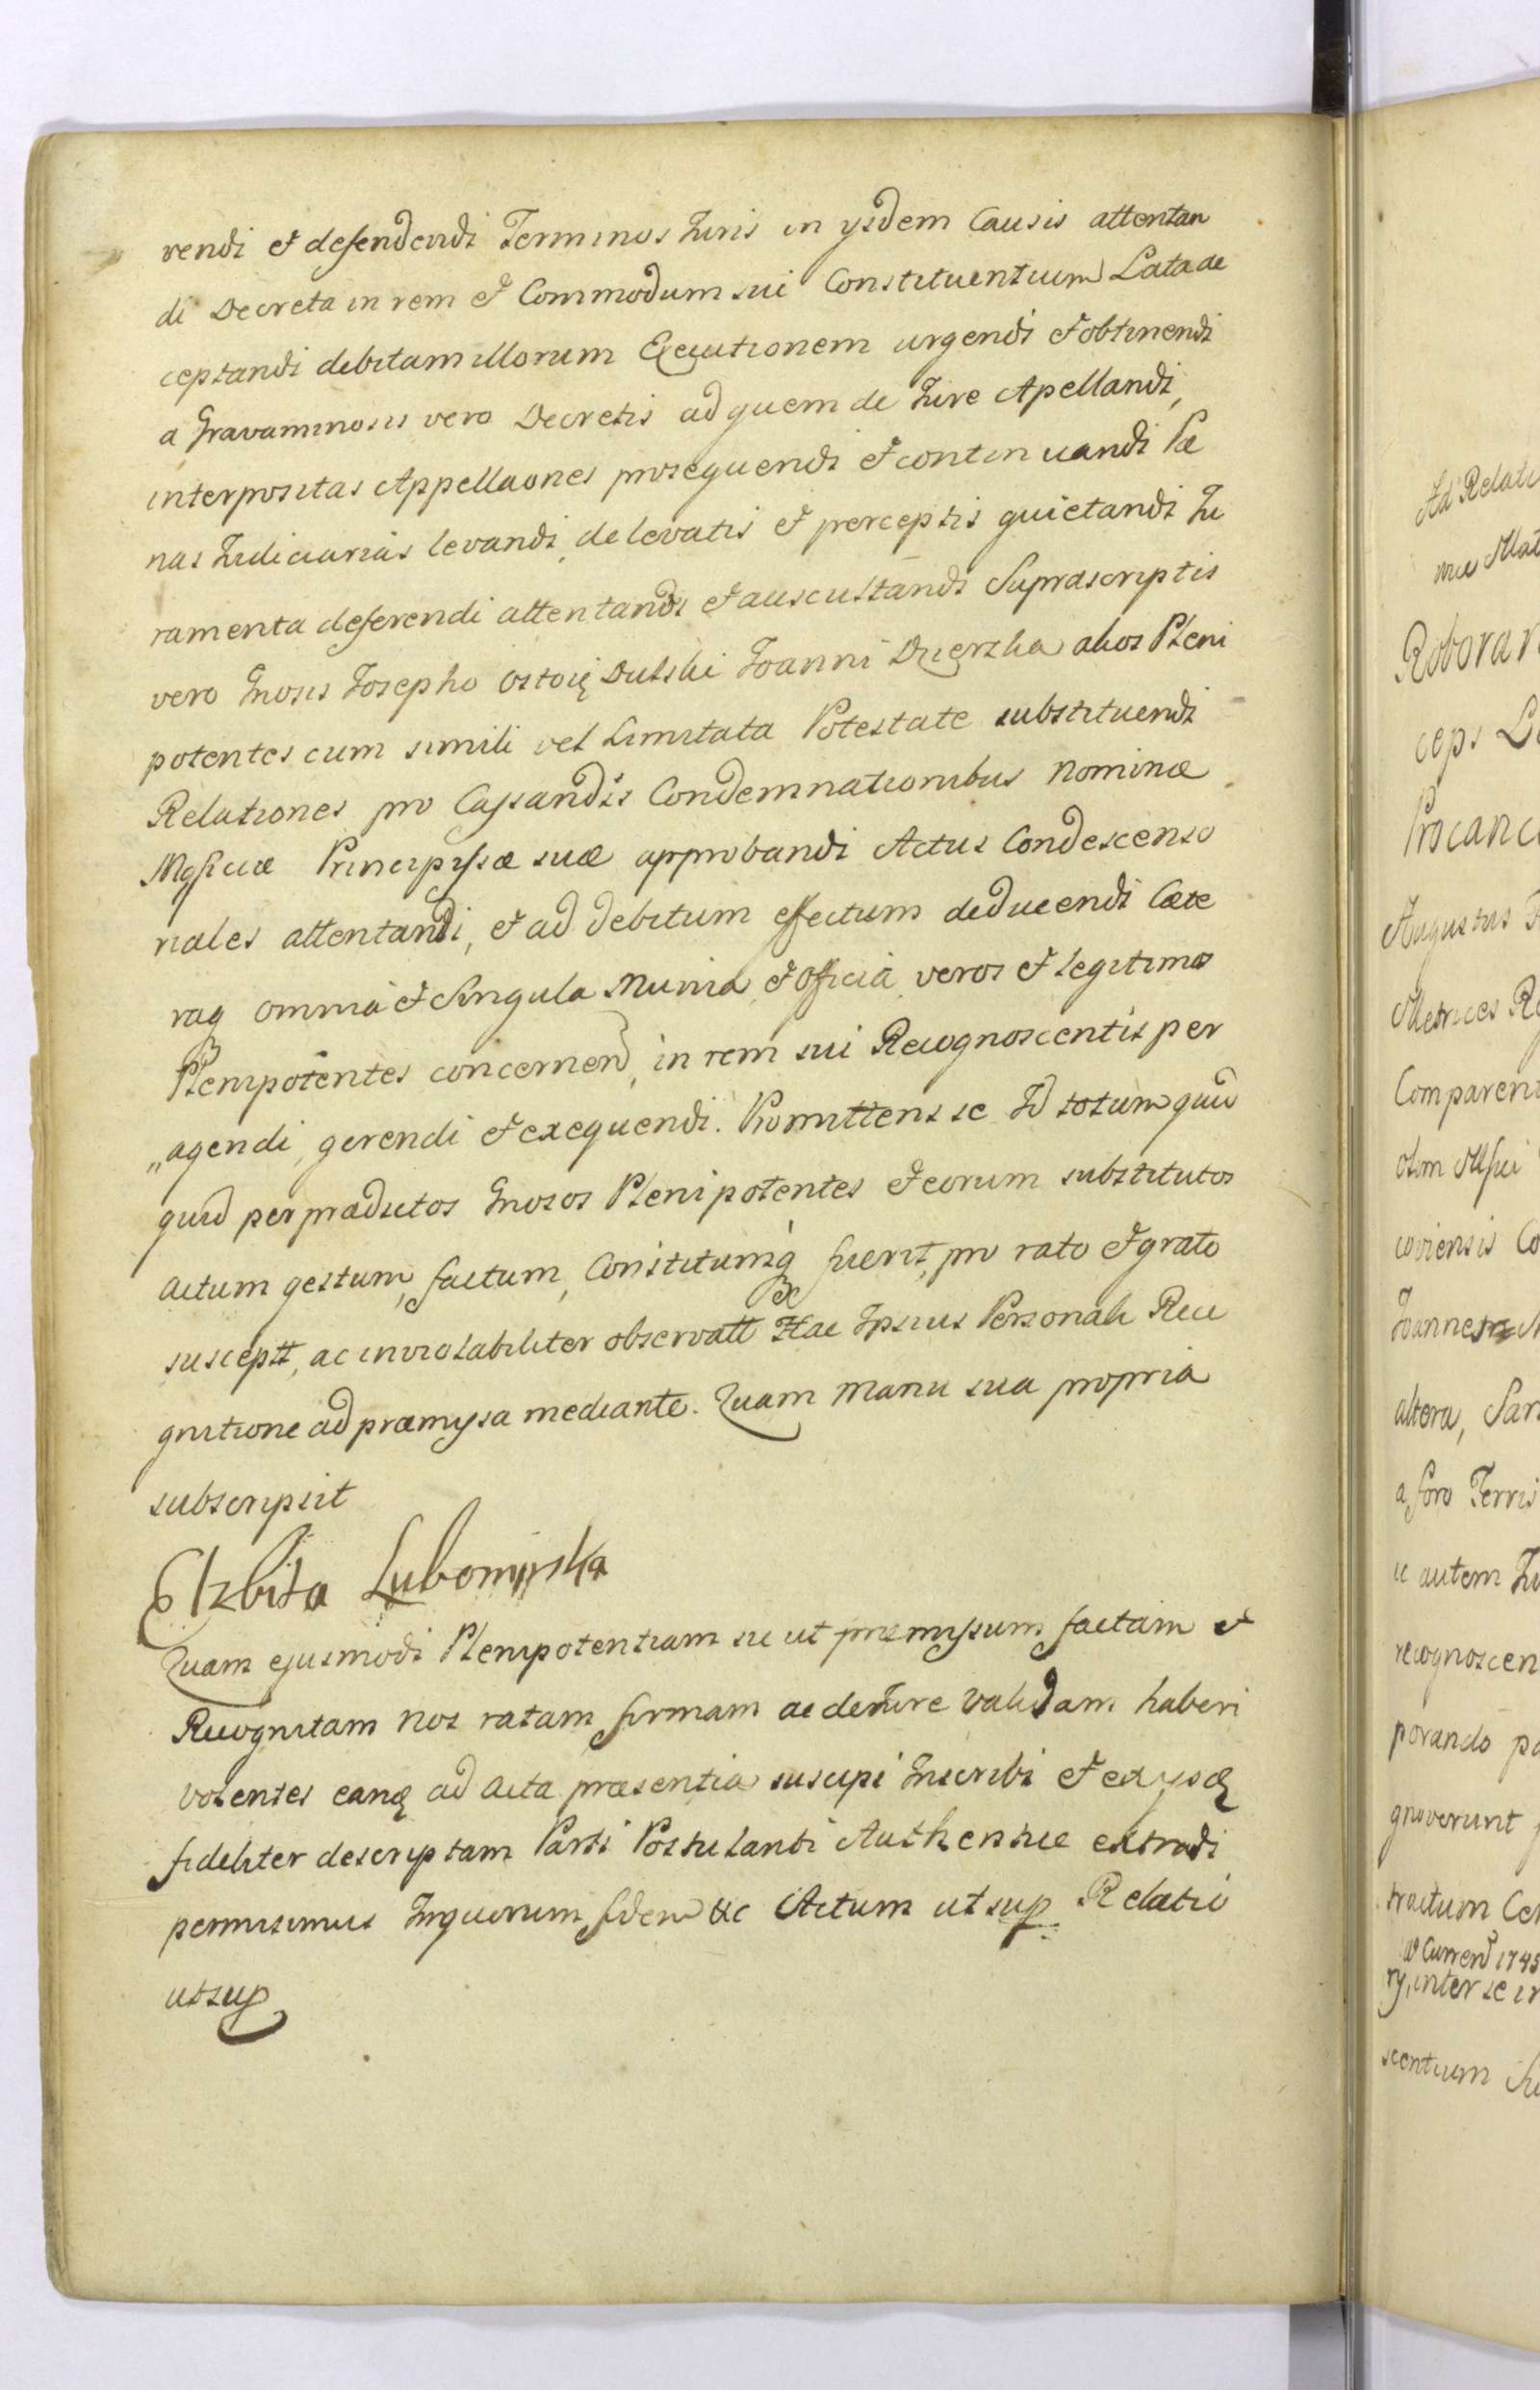 rendi et defendendi Terminos Iuris in ysdem Causis attentan
di Decreta in rem et Commodum sui Constituentium Lata ac
ceptandi debitam illorum Executionem urgendi et obtinendi
a Gravaminosis vero Decretis ad quem de Iure Apellandi,
interpositas Appellaones prosequendi et continuandi Pæ
nas Iudiciarias levandi, de levatis et perceptis quietandi Iu
ramenta deferendi attentandi et auscultandi Suprascriptis
vero Gnosis Josepho Ostoię Dulski Joanni alios Pleni
potentes cum simili vel Limitata Potestate substituendi
Relationes pro Cassandis Condemnationibus nomine
Mgficæ Principissæ suæ approbandi Actus Condescenso
riales attentandi, et ad debitum effectum deducendi Cæte
raq omnia et Singula Munia, et Officia, veros et legitimos
Plenipotentes concernen, in rem sui Recognoscentis per
„agendi, gerendi et exequendi. Promittens se Id totum quid
quid per prædictos Gnosos Plenipotentes et eorum substitutos
actum gestum, factum, Constitutumq fuerit, pro rato et grato
susceptt, ac inviolabiliter observatt Hac Ipsius Personali Reco
gnitione ad præmyssa mediante. Quam Manu sua propria
subscripsit
Elzbita Lubomirska
Quam ejusmodi Plenipotentiam sic ut præmyssum factam et
Recognitam nos ratam firmam ac de Iure validam haberi
volentes eanq ad Acta præsentia suscipi Inscribi et ex ysdę
fideliter descriptam Parti Postulanti Authentice extradi
permisimus Inquorum fidem &c Actum ut sup Relatio
ut sup
Ad Relati
Roborar
ceps
Procanc
Augustus
Metrices
Comparen
coviensis Co
Joannes
altera, San
a foro Terris
autem Iu
recognoscen
porando pa
gnoverunt
tractum Cer
Curren 1743
ry, inter se
scentium